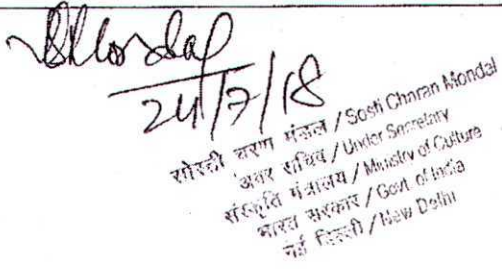 24/7/18
सोस्ती चरण मंडल / Sosti Charan Mondal
अवर सचिव / Under Secretary
संस्कृति मंत्रालय / Ministry of Culture
भारत सरकार / Govt. of India
नई दिल्ली / New Delhi